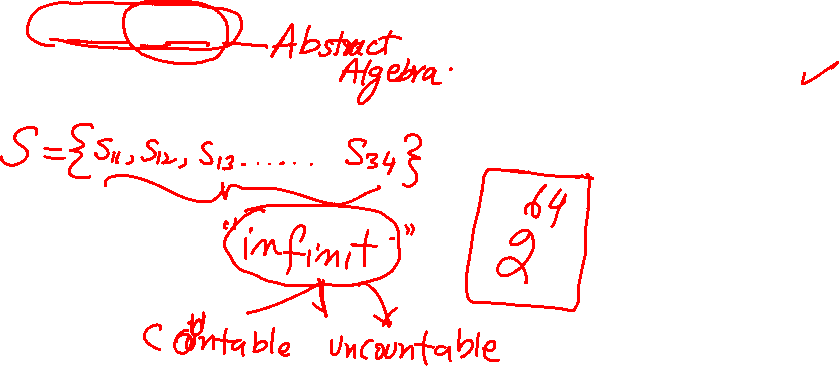 Abstract
Algebra.
S = {S₁₁, S₁₂, S₁₃ ...... S₃₄}
"infinit"
2⁶⁴
countable uncountable